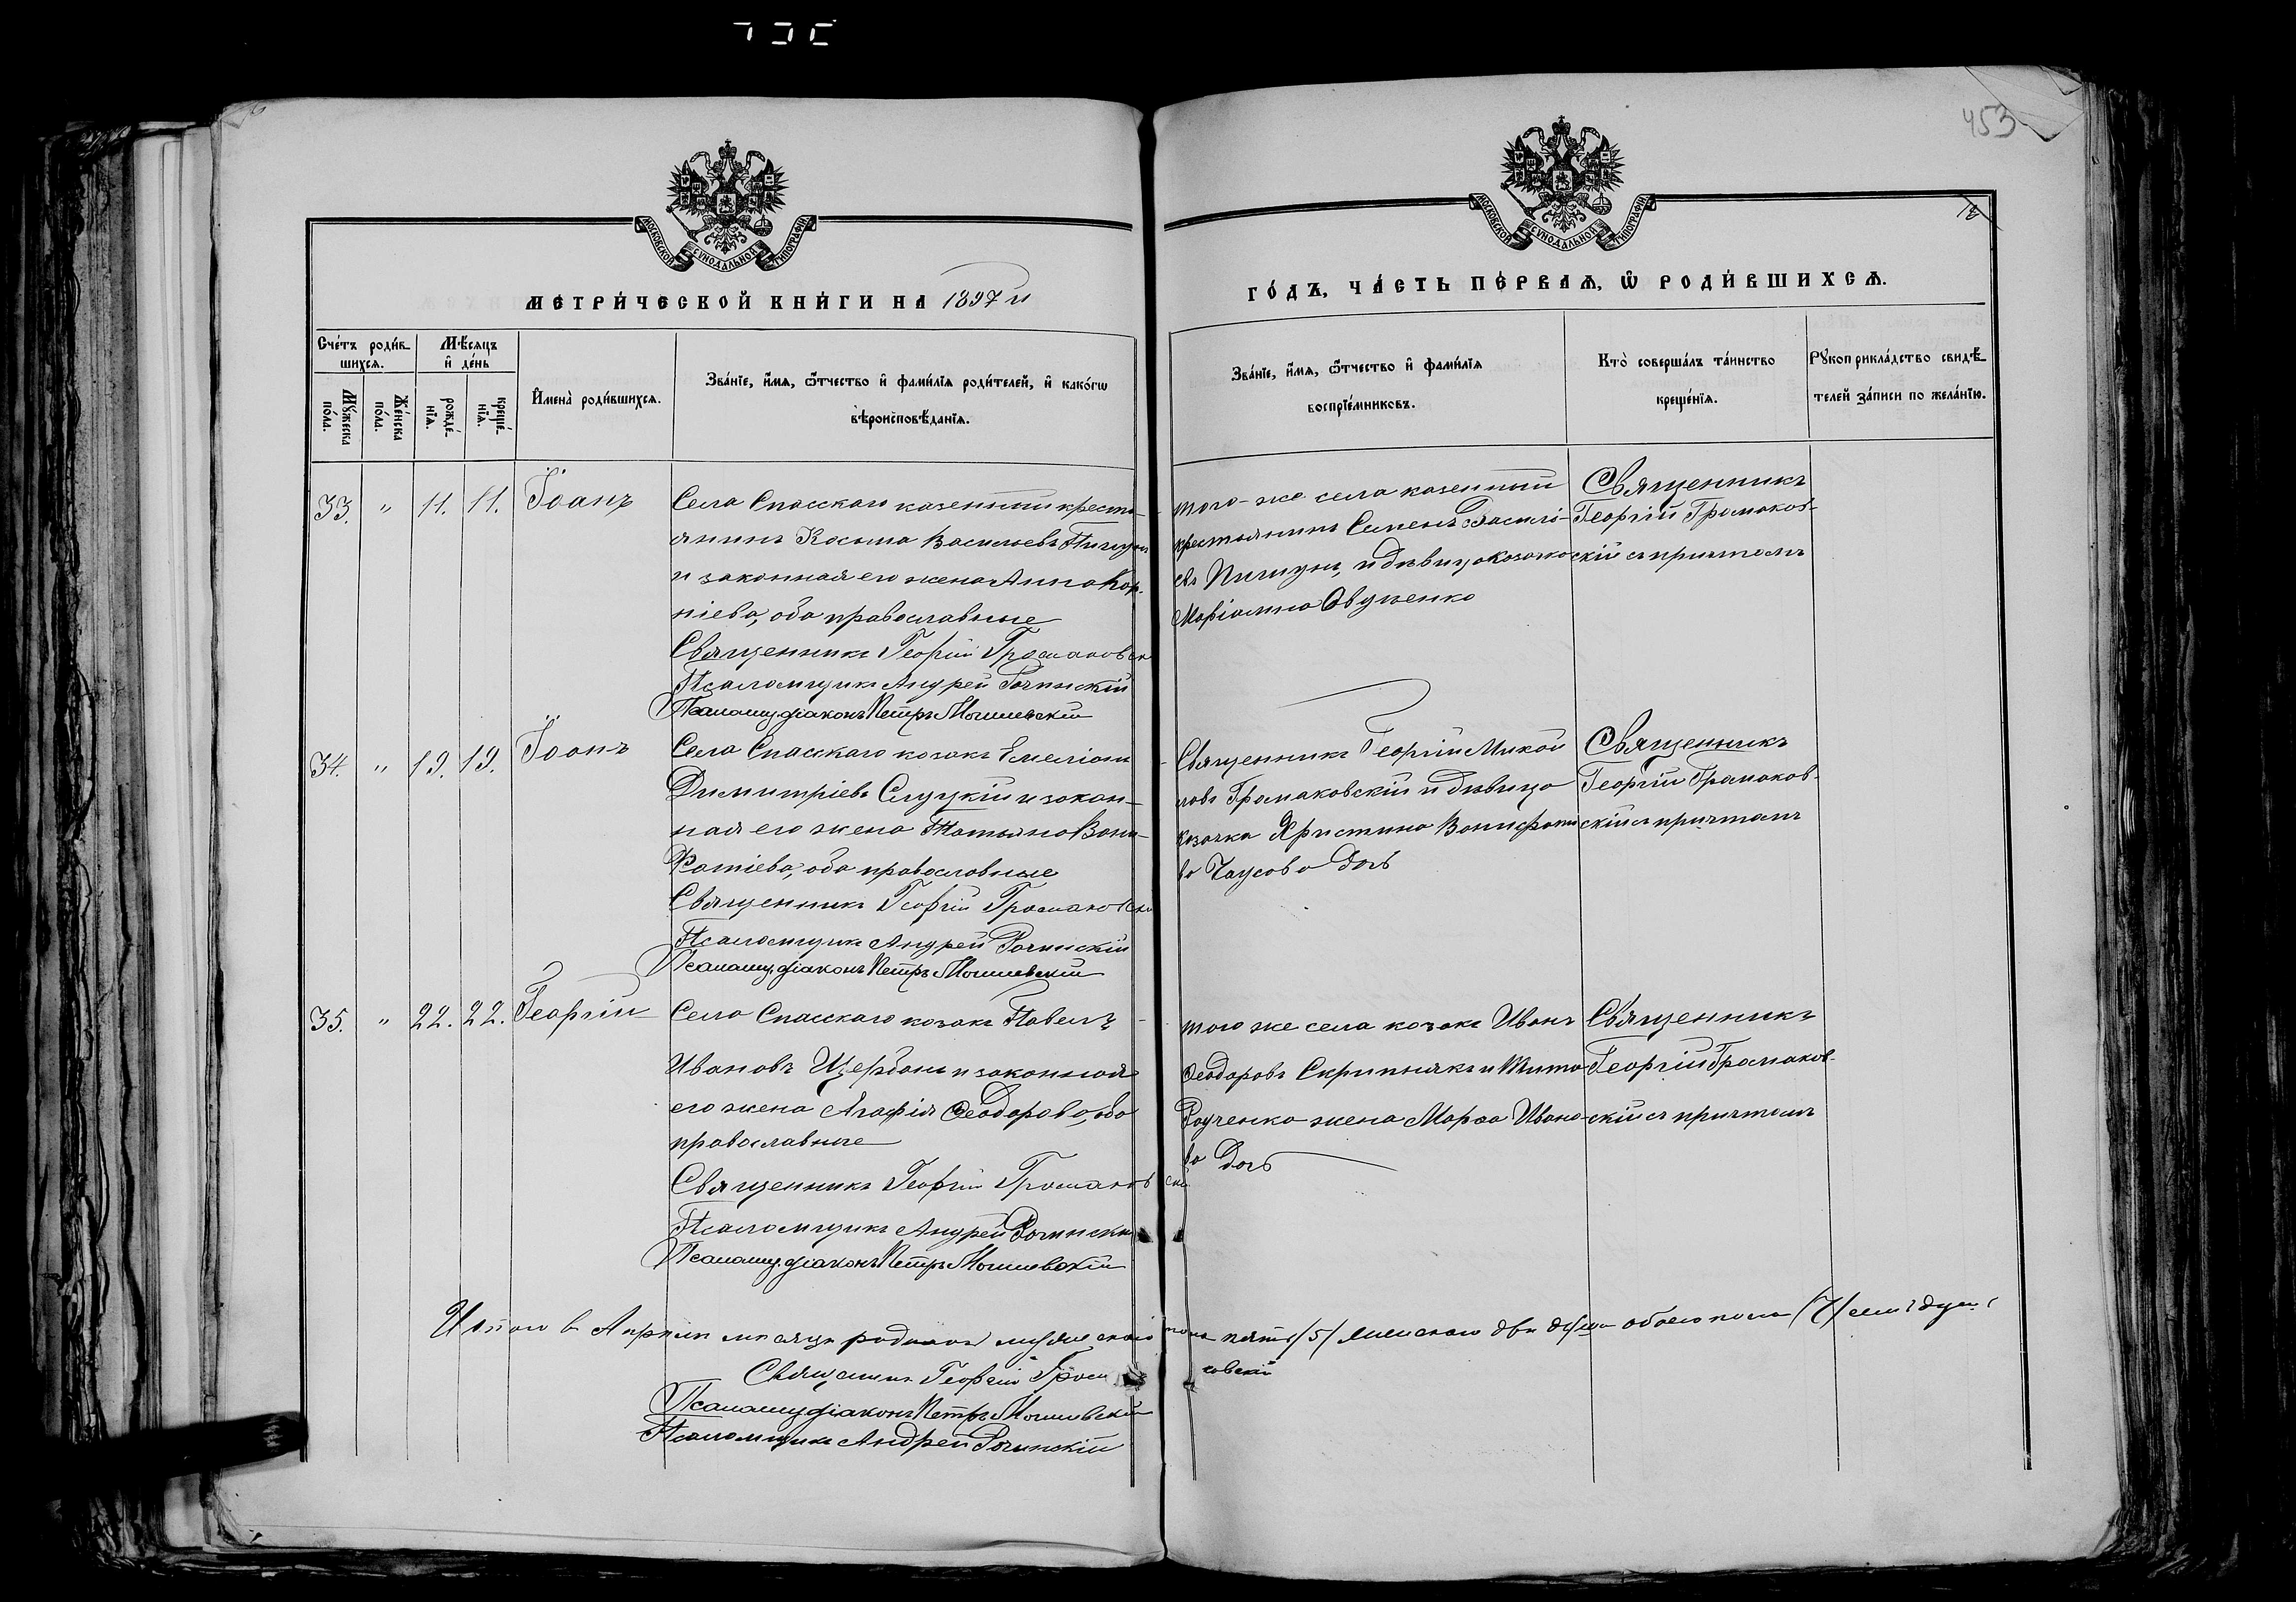 453
МОСКОВСКОЙ СѴНОДАЛЬНОЙ ТИПОГРАФІИ
МОСКОВСКОЙ СѴНОДАЛЬНОЙ ТИПОГРАФІИ
МЕТРИ́ЧЕСКОЙ КНИ́ГИ НА 1897 й
ГО́ДЪ, ЧА́СТЬ ПЕ́РВАѦ, Ѽ РОДИ́ВШИХСѦ.
Сче́тъ роди́в-
шихсѧ.
Мѣ́сяцъ
и҆ де́нь
Мꙋ́жеска по́ла.
Же́нска по́ла.
рожде́-
нїѧ.
креще́-
нїѧ.
И҆мена̀ роди́вшихсѧ.
Зва́нїе, и҆́мѧ, ѻ҆́тчество и҆ фами́лїѧ роди́телей, и҆ како́гѡ
вѣроисповѣ́данїѧ.
Зва́нїе, и҆́мѧ, ѻ҆́тчество и҆ фами́лїѧ
воспрїе́мниковъ.
Кто̀ соверша́лъ та́инство
креще́нїѧ.
Рꙋкоприкла́дство свидѣ́-
телей за́писи по жела́нїю.
33. " 11. 11. Іоанъ
Села Спасскаго казенный кресть-
янинъ Косьма Васильевъ Пичугин
и законная его жена Анна Кор-
ніева, оба православные
Священникъ Георгій Громаковск
Псаломщикъ Андрей Рочинскій
Псаломщ. діаконъ Петръ Могилевскій
того-же села казенный
крестьянинъ Симеонъ Василі-
евъ Пичугин, и девица козачка
Маріамна Овуденко
Священникъ
Георгій Громаков-
скій съ причтомъ
34. " 19. 19. Іоанъ
Села Спасскаго козакъ Емеліанъ
Димитріевъ Слуцкій и закон-
ная его жена Татьяна Вони-
фатіева, оба православные
Священникъ Георгій Громаковскі
Псаломщикъ Андрей Рочинскій
Псаломщ. діаконъ Петръ Могилевскій
Священникъ Георгій Микола-
евъ Громаковскій и девица
козачка Христина Вонифати
ва Чаусова дочь
Священникъ
Георгій Громаков-
скій съ причтомъ
35. " 22. 22. Георгій
Села Спасскаго козакъ Павелъ
Ивановъ Щербань и законная
его жена Агафія Феодорова, оба
православные
Священникъ Георгій Громаковскій
Псаломщикъ Андрей Рочинскій
Псаломщ. діаконъ Петръ Могилевскій
того же села козакъ Иванъ
Феодоровъ Скрипнякъ и Тита
Радченка жена Марѳа Ивано-
ва дочь
Священникъ
Георгій Громаков-
скій съ причтомъ
Итого в Апреле месяце родилось мужескаго пола пять /5/ женскаго две души обоего пола /7/ семь душъ
Священникъ Георгій Громаковскій
Псаломщ діаконъ Петръ Могилевскій
Псаломщикъ Андрей Рочинскій